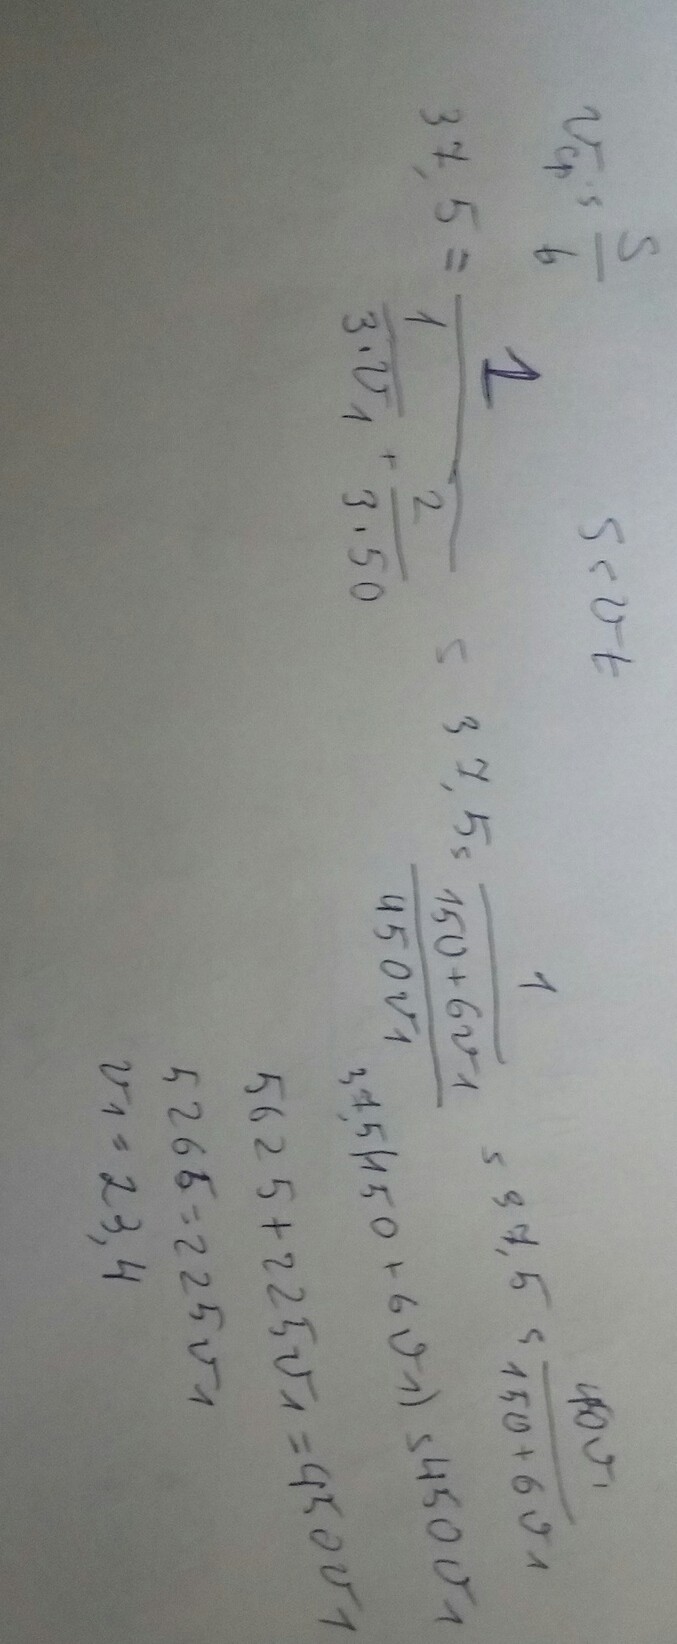 vср = S/t
S = vt
37,5 = 1/(1/(3·v1) + 2/(3·50)) =
37,5 = 1/((150+6v1)/(450v1))
= 37,5 = 450v1/(150+6v1)
37,5(150+6v1) = 450v1
5625+225v1 = 450v1
5265=225v1
v1=23,4